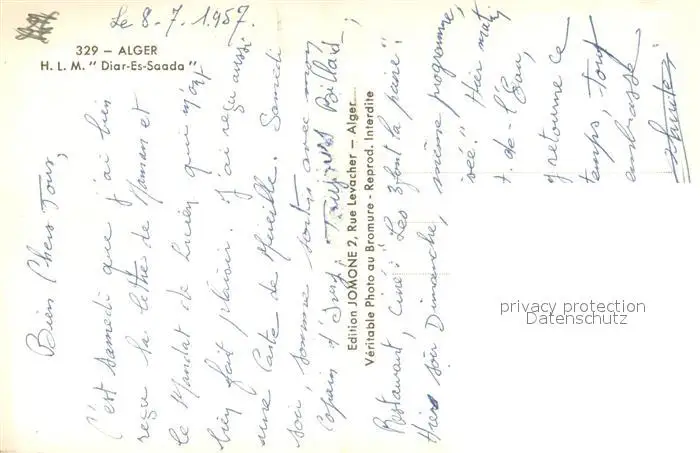 Le 8-7.1957.
329 — ALGER
H. L. M. " Diar-Es-Saada "
Bien Chers Tous,
C'est samedi que j'ai bien
reçue la lettre de Maman et
le Mandat de Lucien qui m'ont
bien fait plaisir. J'ai reçu aussi
une Carte de Mireille. Samedi
soir, sommes sortis avec mon
Copain d' Toujours Billard,
Restaurant, Ciné "Les 3 font la paire".
Hier soir Dimanche, même programme,
"Hier matin
t. de l'Eau,
retourne ce
temps, Tout
embrasse
Edition JOMONE 2, Rue Levacher — Alger
Véritable Photo au Bromure - Reprod. Interdite
privacy protection
Datenschutz